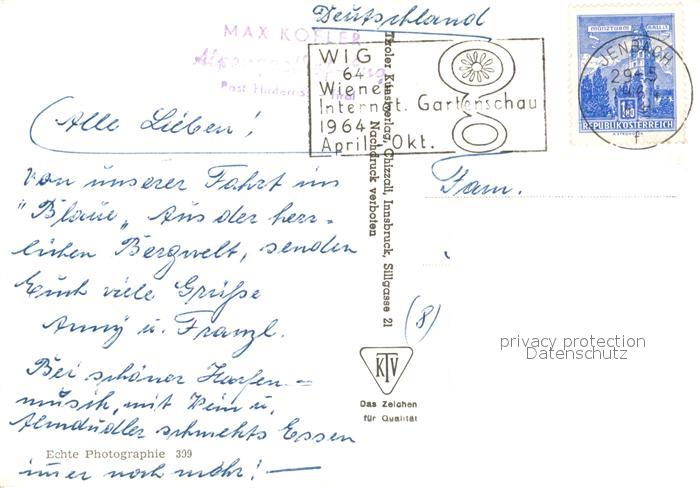 Deutschland
MAX KOFLER
Post Hinterriss, Tirol
WIG
64
Wiener
Internat. Gartenschau
1964
April - Okt.
MÜNZTURM HALL I. T.
JENBACH
29-5
REPUBLIK ÖSTERREICH
Tiroler Kunstverlag, Chizzali, Innsbruck, Sillgasse 21
Nachdruck verboten
(Alle Lieben!
Von unserer Fahrt ins
"Blaue" Aus der herr-
lichen Bergwelt, senden
Euch viele Grüße
Anny u. Franzl.
Bei schöner Harfen-
musik, mit Wein u.
Almdudler schmekts Essen
imer noch mehr! —
Fam.
(8)
KTV
Das Zeichen
für Qualität
privacy protection
Datenschutz
Echte Photographie 399